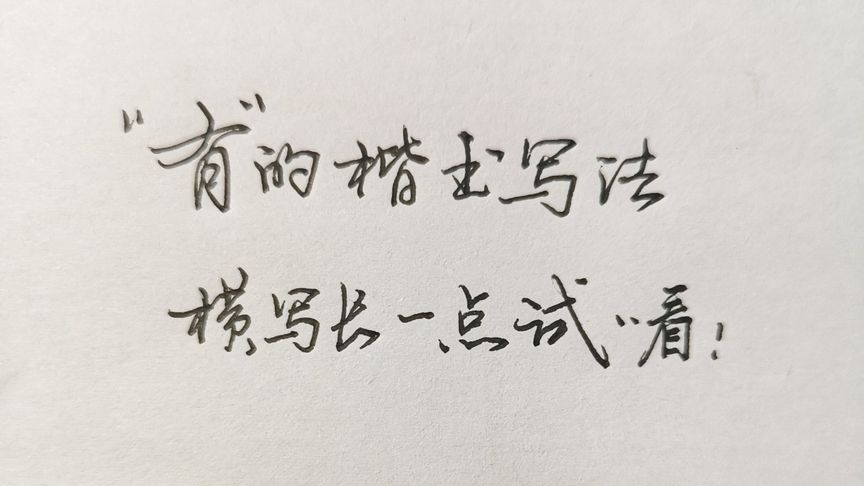 “有”的楷书写法
横写长一点试〃看!